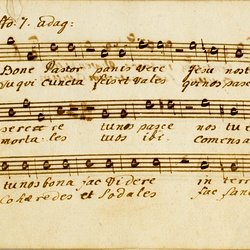 Ad: 7. Adag:
Bone Pastor panis vere Jesu nos
tu qui cuncta scis et vales qui nos pasc
serere re tu nos pasce nos tu
morta les tuos ibi. comensa
tu nos bona fac videre in terr
Cohæredes et sodales fac sanc